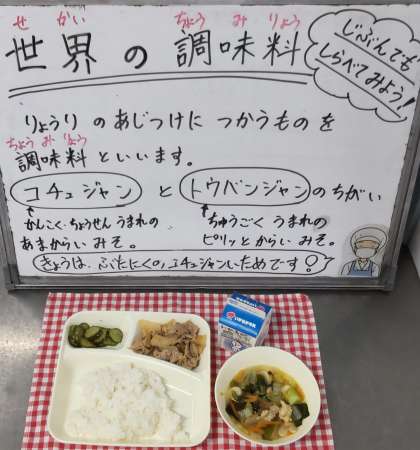 せかい ちょうみりょう
世界の調味料
じぶんでも
しらべてみよう!
りょうりのあじつけにつかうものを
ちょうみりょう
調味料といいます。
コチュジャンとトウバンジャンのちがい
かんこく・ちょうせんうまれの
あまからいみそ。
ちゅうごくうまれの
ピリッとからいみそ。
きょうは、ぶたにくのコチュジャンいためです!